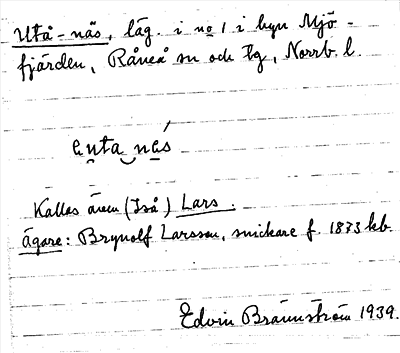 Utå-näs, läg. i no 1 i byn Mjö-
fjärden, Råneå sn och tg, Norrb. l.
ęuta nęs
Kallas även (Iså) Lars.
ägare: Brynolf Larsson, snickare f. 1873 kb.
Edvin Brännström 1939.